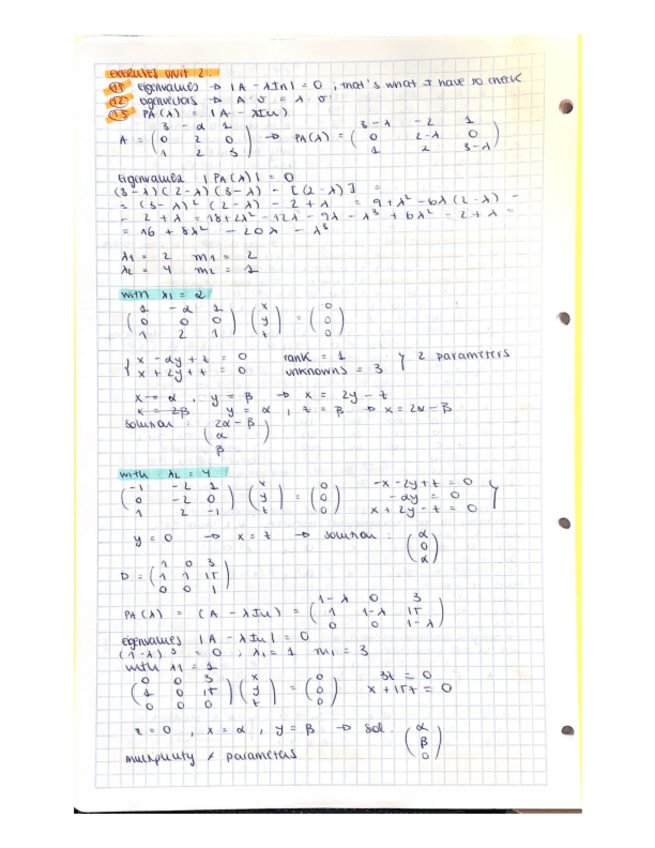 EXERCISES UNIT 2:
11 Eigenvalues → |A - λIn| = 0 ; that's what I have to check
12 eigenvectors → A · v = λ · v
15 PA(λ) = |A - λIn|
A = ( 3 -2 1 / 0 2 0 / 1 2 3 ) → PA(λ) = ( 3-λ -2 1 / 0 2-λ 0 / 1 2 3-λ )
Eigenvalues |PA(λ)| = 0
(3-λ)(2-λ)(3-λ) - [(2-λ)] =
= (3-λ)² (2-λ) - 2 + λ = 9 + λ² - 6λ (2-λ) -
- 2 + λ = 18 + 2λ² - 12λ - 9λ - λ³ + 6λ² - 2 + λ =
= 16 + 8λ² - 20λ - λ³
λ1 = 2 m1 = 2
λ2 = 4 m2 = 1
with λ1 = 2
( 1 -2 1 / 0 0 0 / 1 2 1 ) ( x / y / z ) = ( 0 / 0 / 0 )
{ x - 2y + z = 0 rank = 1 } 2 parameters
x + 2y + z = 0 unknowns = 3
x = α , y = β → x = 2y - z
x = 2β y = α , z = β → x = 2α - β
solution : ( 2α - β / α / β )
with λ2 = 4
( -1 -2 1 / 0 -2 0 / 1 2 -1 ) ( x / y / z ) = ( 0 / 0 / 0 ) -x - 2y + z = 0
-2y = 0
x + 2y - z = 0 }
y = 0 → x = z → solution : ( α / 0 / α )
D = ( 1 0 3 / 1 1 15 / 0 0 1 )
PA(λ) = (A - λIn) = ( 1-λ 0 3 / 1 1-λ 15 / 0 0 1-λ )
eigenvalues |A - λIn| = 0
(1-λ)³ = 0 , λ1 = 1 m1 = 3
with λ1 = 1
( 0 0 3 / 1 0 15 / 0 0 0 ) ( x / y / z ) = ( 0 / 0 / 0 ) 3z = 0
x + 15z = 0
z = 0 , x = α , y = β → sol. ( α / β / 0 )
multiplicity ≠ parameters